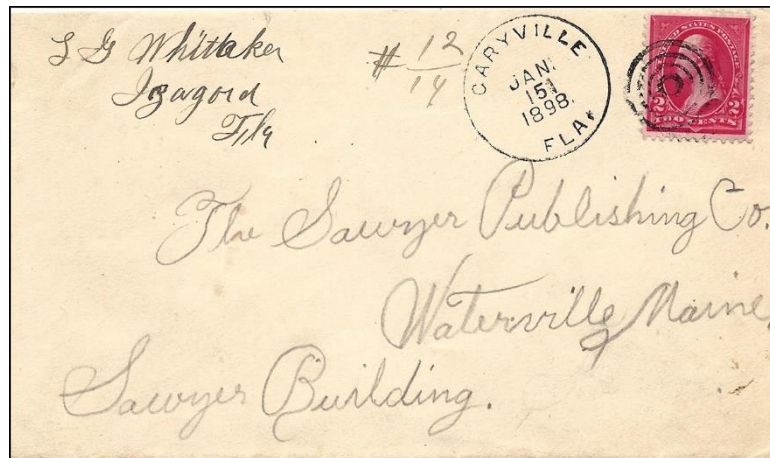 L G Whittaker
Izagord
Fla
# 12
14
CARYVILLE
JAN.
15
1898.
FLA
UNITED STATES POSTAGE
2 2
TWO CENTS
The Sawyer Publishing Co.
Waterville Maine,
Sawyer Building.